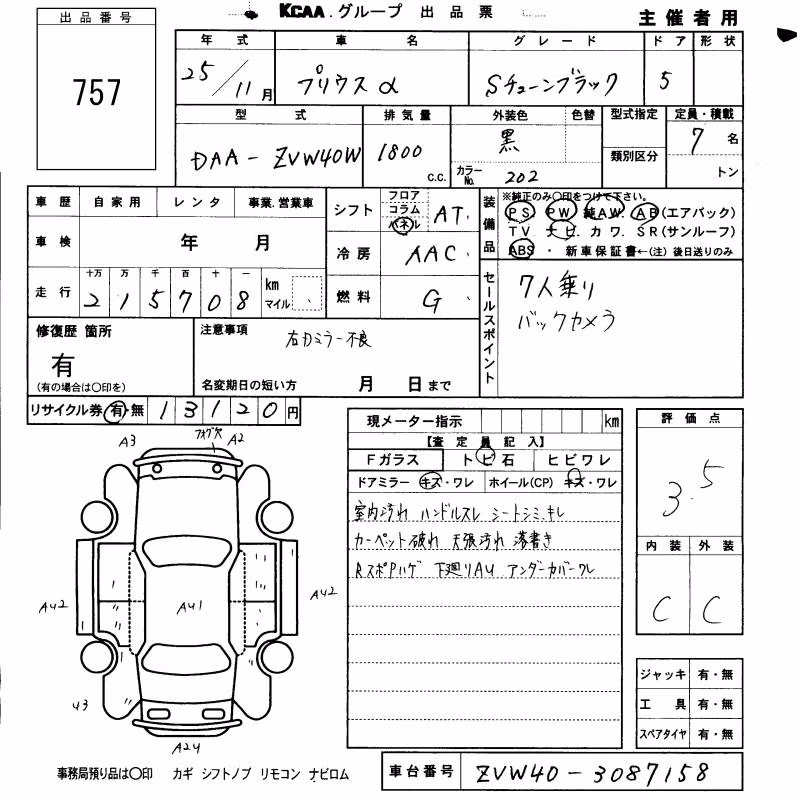 KCAA.グループ 出品票
主催者用
出品番号
757
年式 車名 グレード ドア 形状
25/11月 プリウスα Sチューンブラック 5
型式 排気量 外装色 色替 型式指定 定員・積載
DAA-ZVW40W 1800 c.c. 黒 カラーNo. 202 類別区分 7名
トン
車歴 自家用 レンタ 事業.営業車
車検 年 月
走行 十万 万 千 百 十 一
2 1 5 7 0 8 km マイル
シフト フロア コラム パネル AT
冷房 AAC
燃料 G
装備品 ※純正のみ○印をつけて下さい。
PS PW 純AW. AB(エアバック)
TV ナビ. カワ. SR(サンルーフ)
ABS ・ 新車保証書←(注)後日送りのみ
セールスポイント
7人乗り
バックカメラ
修復歴 箇所
有
(有の場合は○印を)
注意事項
右カミラー不良
名変期日の短い方 月 日まで
リサイクル券 有・無 13120円
現メーター指示 km
【査定員記入】
Fガラス トビ石 ヒビワレ
ドアミラー キズ・ワレ ホイール(CP) キズ・ワレ
室内汚れ ハンドルスレ シートシミ.キレ
カーペット破れ 天張汚れ 落書き
RスポPハゲ 下廻りAU アンダーカバーワレ
評価点
3.5
内装 外装
C C
A3 フォグ穴 A2
AU2 AU1 AU2
U3 A3
A2U
ジャッキ 有・無
工具 有・無
スペアタイヤ 有・無
事務局預り品は○印 カギ シフトノブ リモコン ナビロム
車台番号 ZVW40-3087158